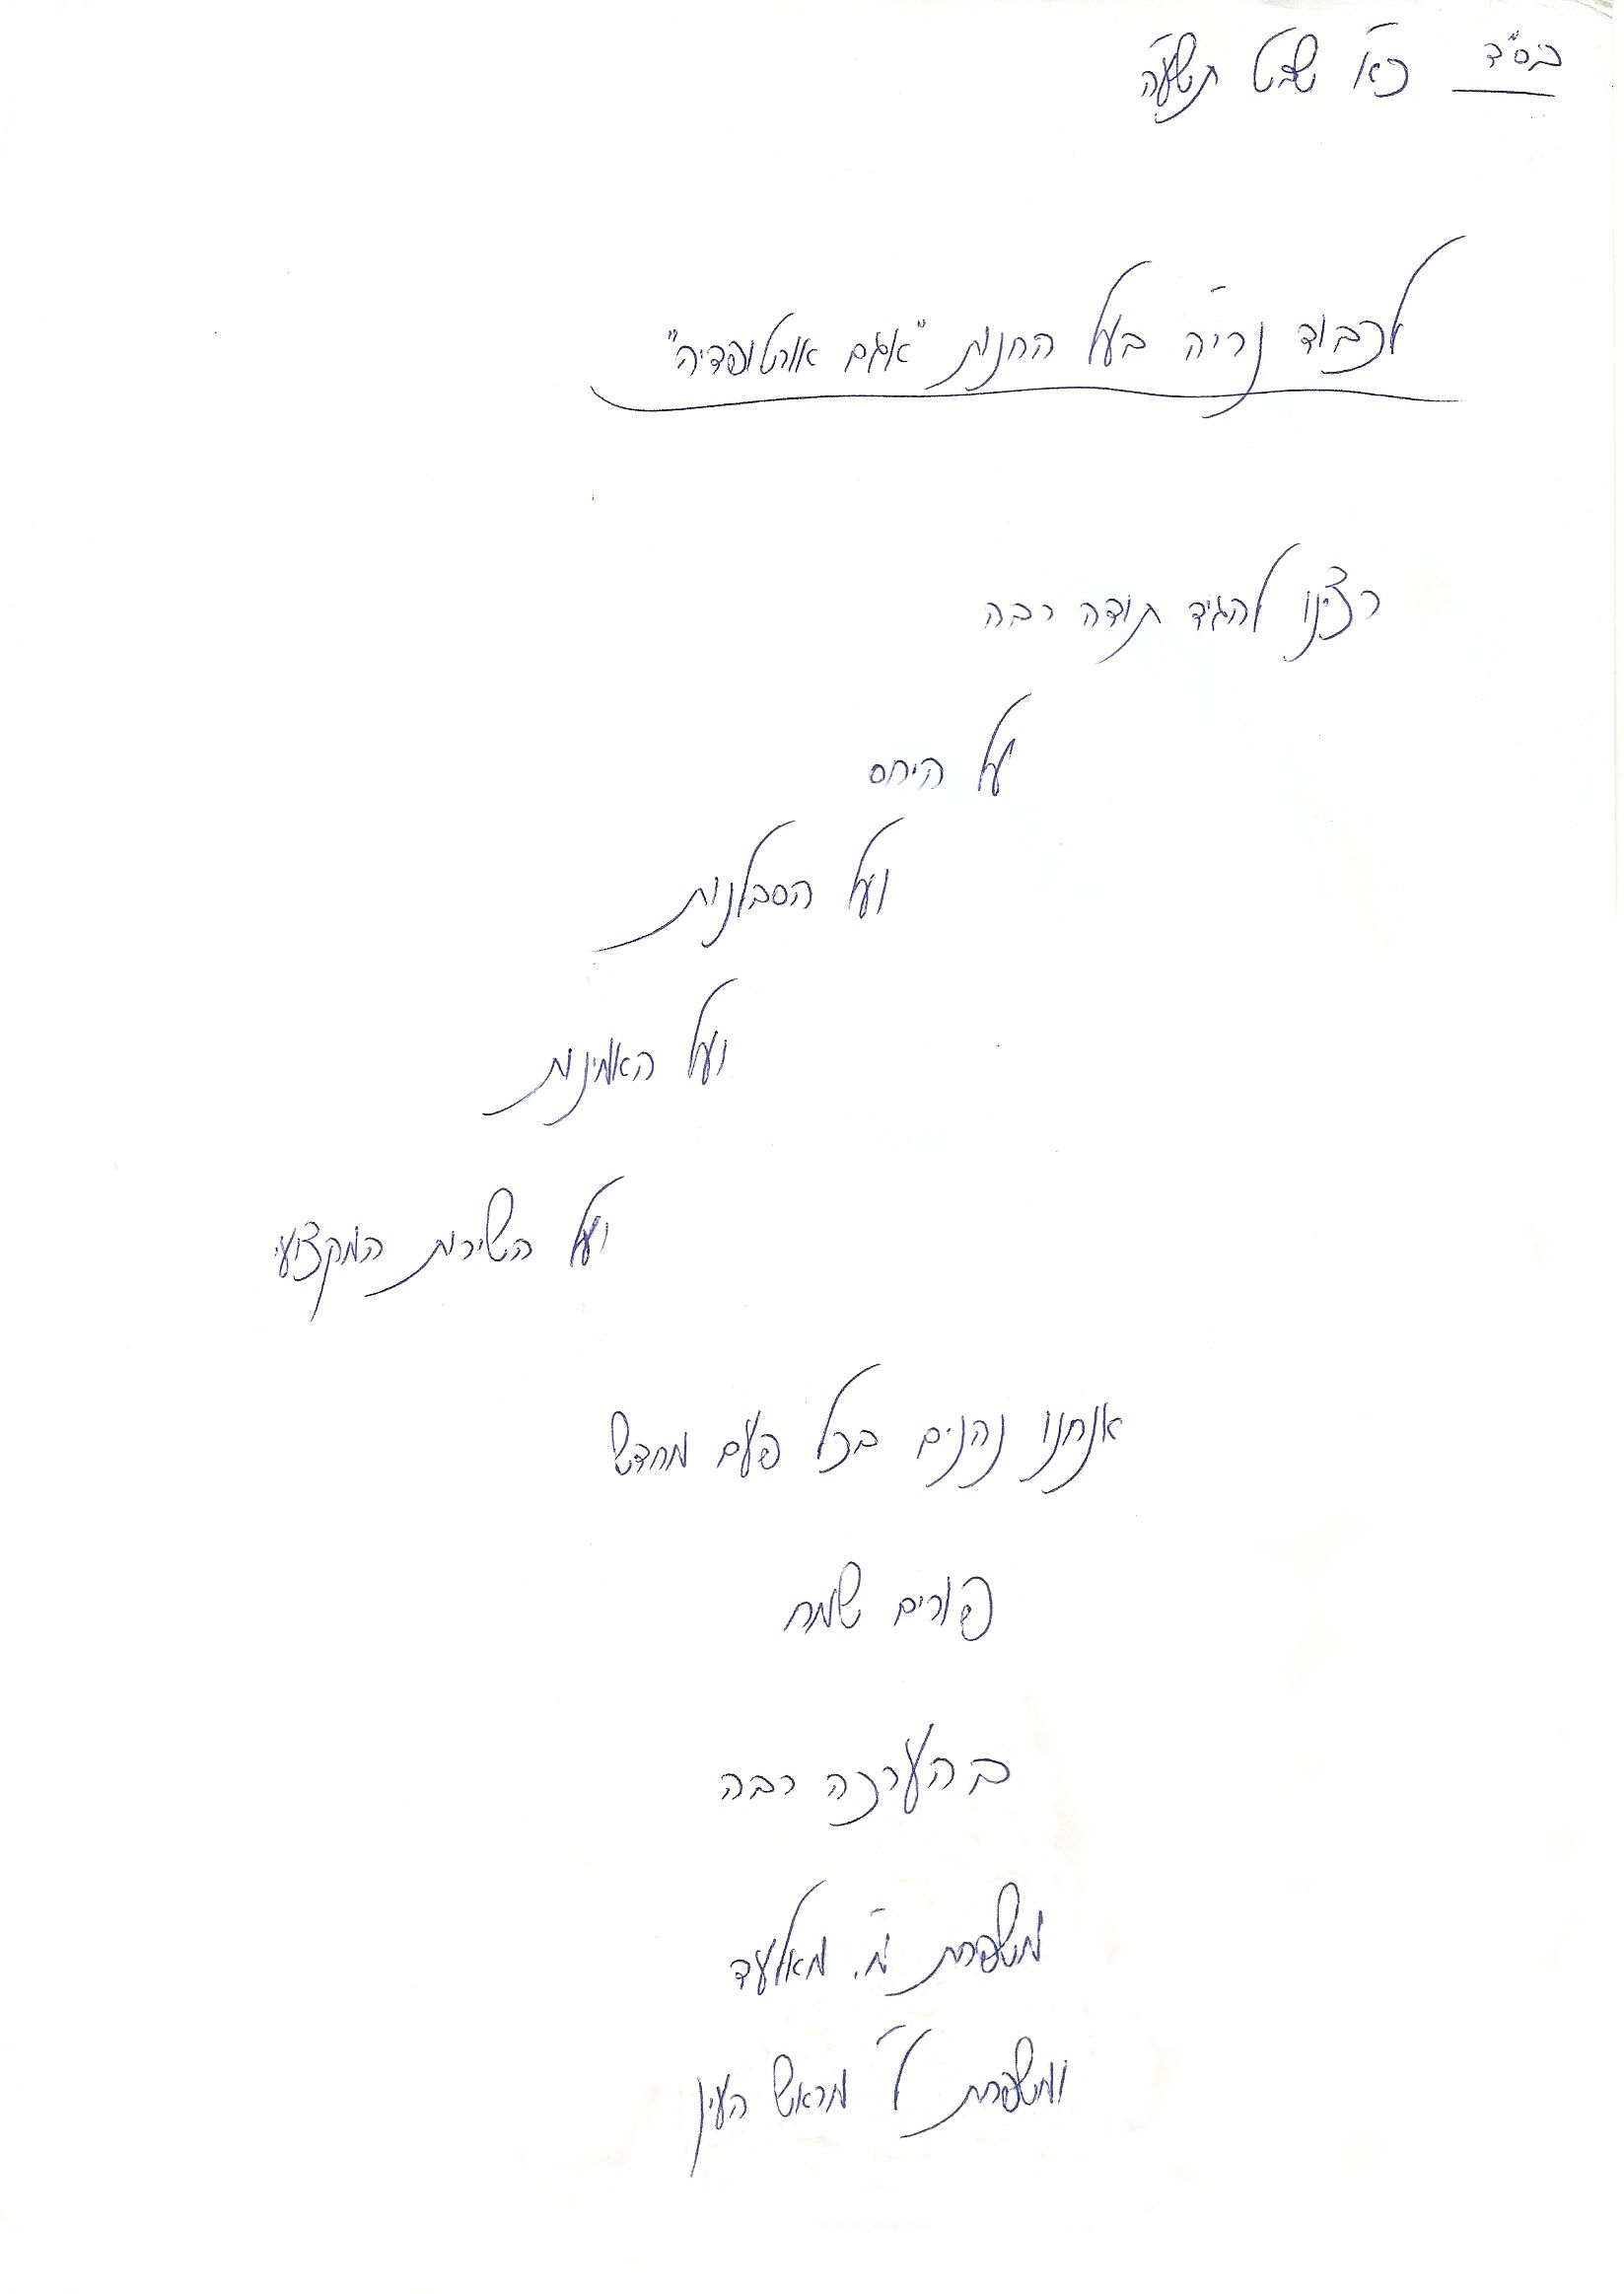 בס"ד כ"א שבט תשע"ה
לכבוד נרי'ה בעל החנות "אגם אורטופדיה"
רצינו להגיד תודה רבה
על היחס
ועל הסבלנות
ועל האמינות
ועל השירות המקצועי
אנחנו נהנים בכל פעם מחדש
פורים שמח
בהערכה רבה
משפחת מ'. מאלעד
ומשפחת ל' מראש העין